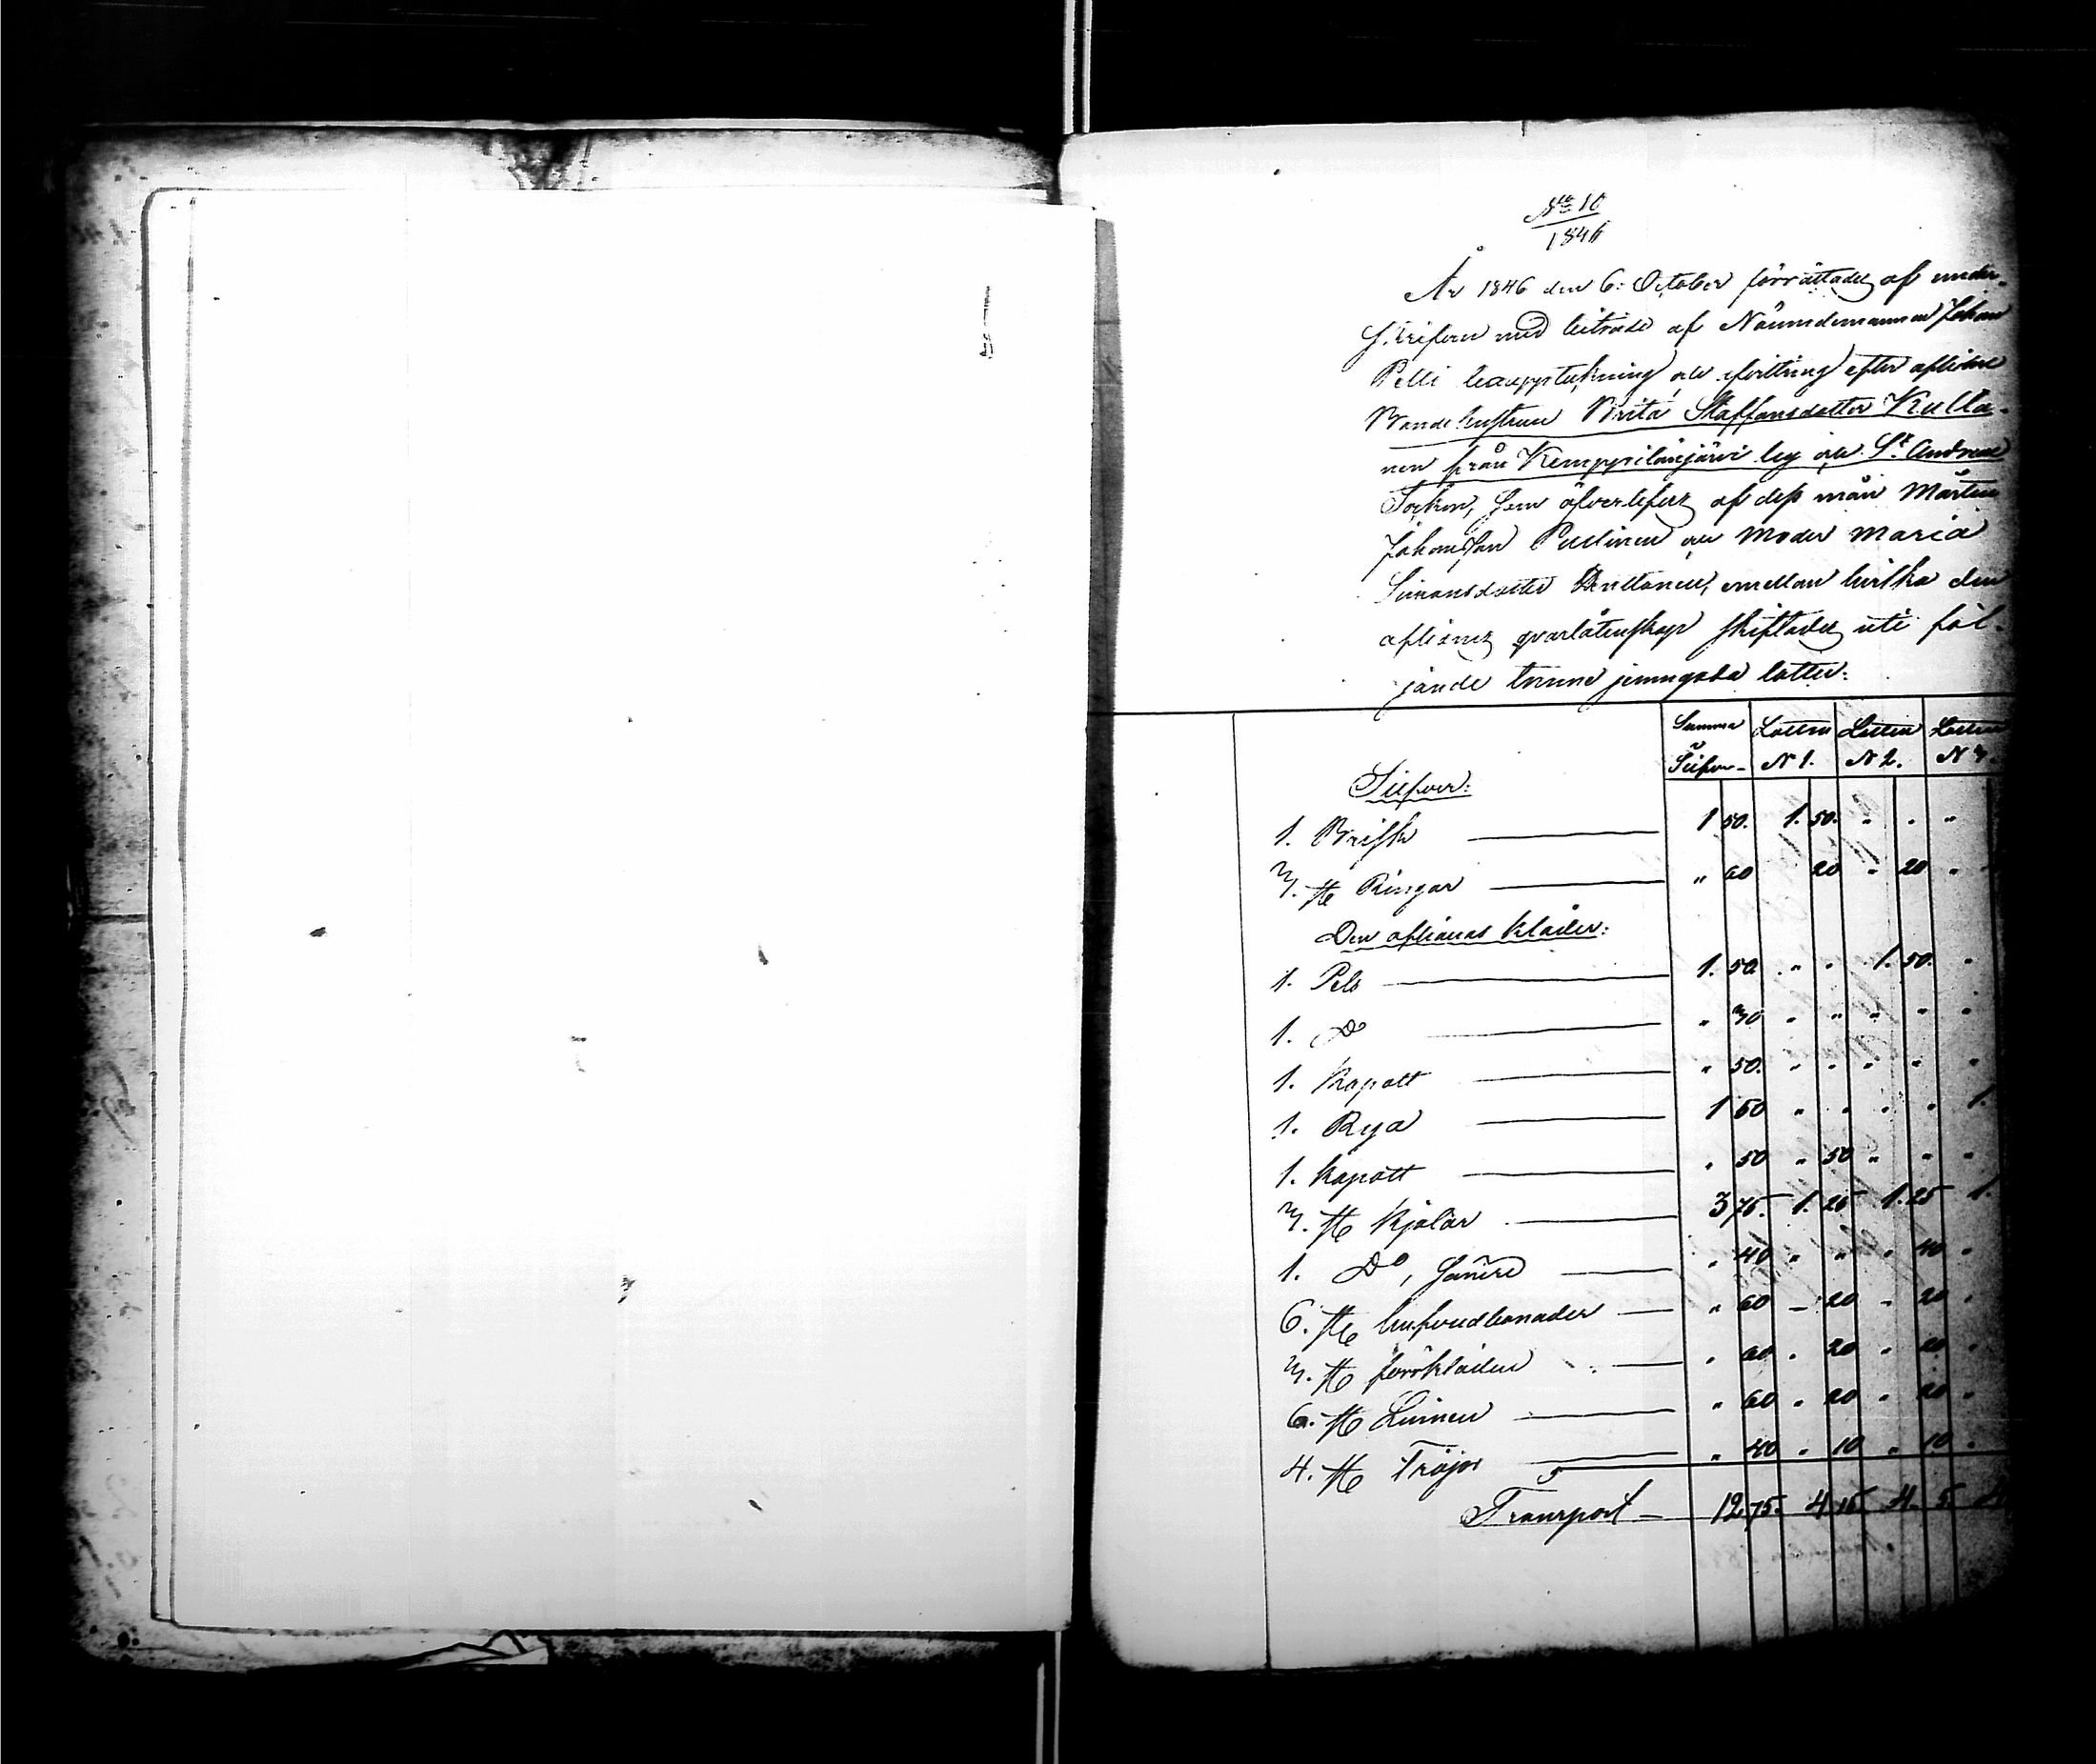 No 10
1846
År 1846 den 6. October förrättades af under-
skrifven med biträde af Nämndemannen Johan
Pelli bouppteckning och skiftning efter aflidne
Bondehustrun Brita Staffansdotter Kulla-
nen från Kemppilänjärvi by och St. Andreae
Sochn, som öfverlefves af dess man Mårten
Johansson Puslinen och Moder Maria
Simonsdotter, emellan hvilka den
aflidnes qvarlåtenskap skiftades uti föl-
jande trenne jemngoda lotter:
Summa Lotten Lotten Lotten
Silfver N 1. N 2. N 3.
Silfver:
1. Briska 1 50. 1. 50. " . "
3. st Ringar " 60 20 " 20 "
Den aflidnas kläder:
1. Pels 1. 50 " " 1. 50. "
1. Do " 30 " " " " "
1. Kapott " 50. " " " " "
1. Rya 1 60 " " " " 1.
1. Kapott " 50 " 50 " " "
3. st Kjolar 3 75. 1. 25 1. 25 1.
1. Do, sämre " 40 " " " 40 "
6. st hufvudbonader " 60 " 20 " 20 "
3. st förkläden " 60 " 20 " 20 "
6. st Linnen " 60 " 20 " 20 "
4. st Tröjor " 40 " 10 " 10 "
Transport 12. 75. 4 15 4. 5. 4